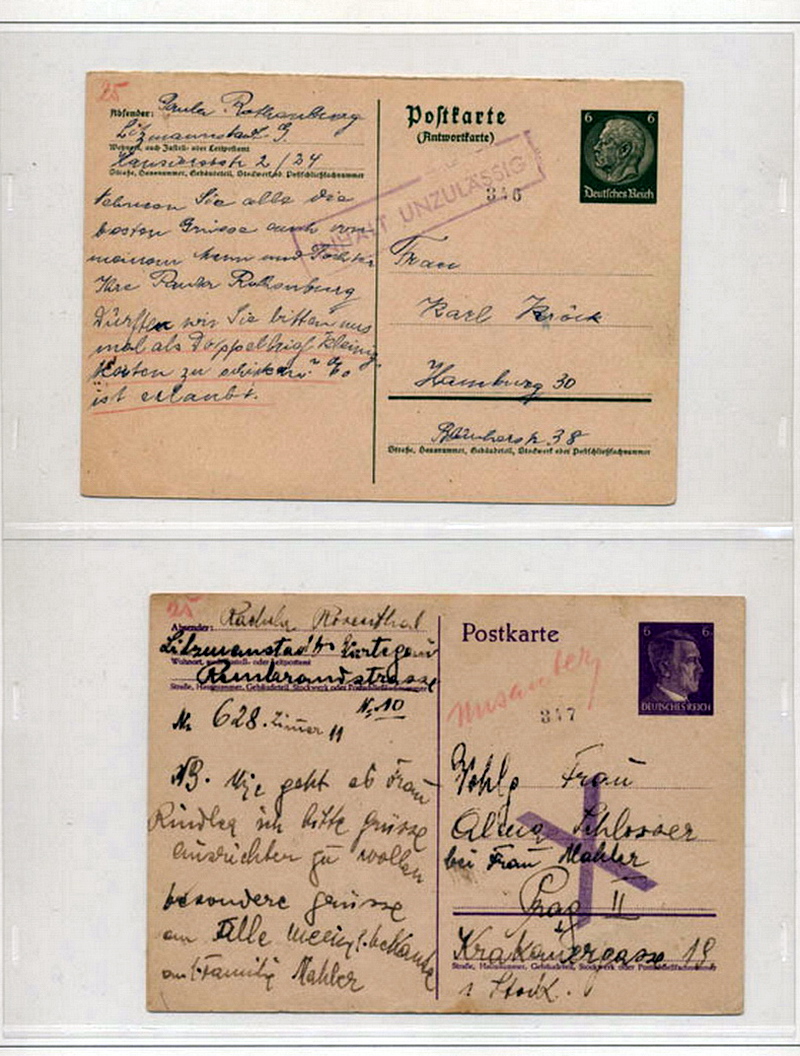 25
Absender: Paula Rothenburg
Litzmannstadt-G.
Wohnort, auch Zustell- oder Leitpostamt
Hanseatenstr 2/24
Straße, Hausnummer, Gebäudeteil, Stockwerk od. Postschließfachnummer
Nehmen Sie alle die
besten Grüsse auch von
meinem Mann und Tochter
Ihre Paula Rothenburg
Dürften wir Sie bitten uns
mal als Doppelbrief kleinig
zu schicken? Es
ist erlaubt.
Postkarte
(Antwortkarte)
6 6
Deutsches Reich
INHALT UNZULÄSSIG
346
Frau
Karl Kröck
Hamburg 30
38
Straße, Hausnummer, Gebäudeteil, Stockwerk oder Postschließfachnummer
25
Absender: Rosenthal
Litzmannstadt
Wohnort, auch Zustell- oder Leitpostamt
Rembrandstrasse
Straße, Hausnummer, Gebäudeteil, Stockwerk oder Postschließfachnummer
No 10
No 628. Zimer 11
NB. Wie geht es Frau
ich bitte grüsse
ausrichten zu wollen
besondere grüsse
an Alle
an Familie Mahler
Postkarte
6 6
DEUTSCHES REICH
347
Frau
Schlosser
bei Frau Mahler
Prag II
Krakauergasse 19
Straße, Hausnummer, Gebäudeteil, Stockwerk oder Postschließfachnummer
1 Stock.